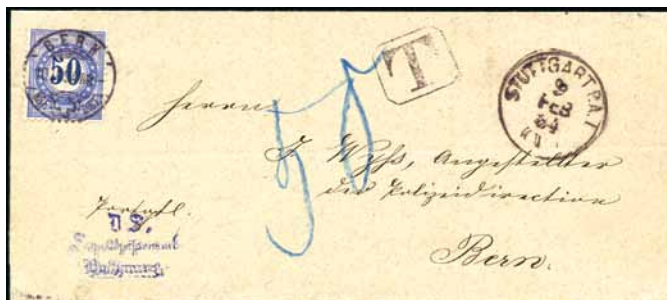 BERN
50
T
STUTTGART P.A.1
9
FEB
84
50
Herrn
J. Wyss, Angestellter
der Polizeidirection
Bern.
D. S.